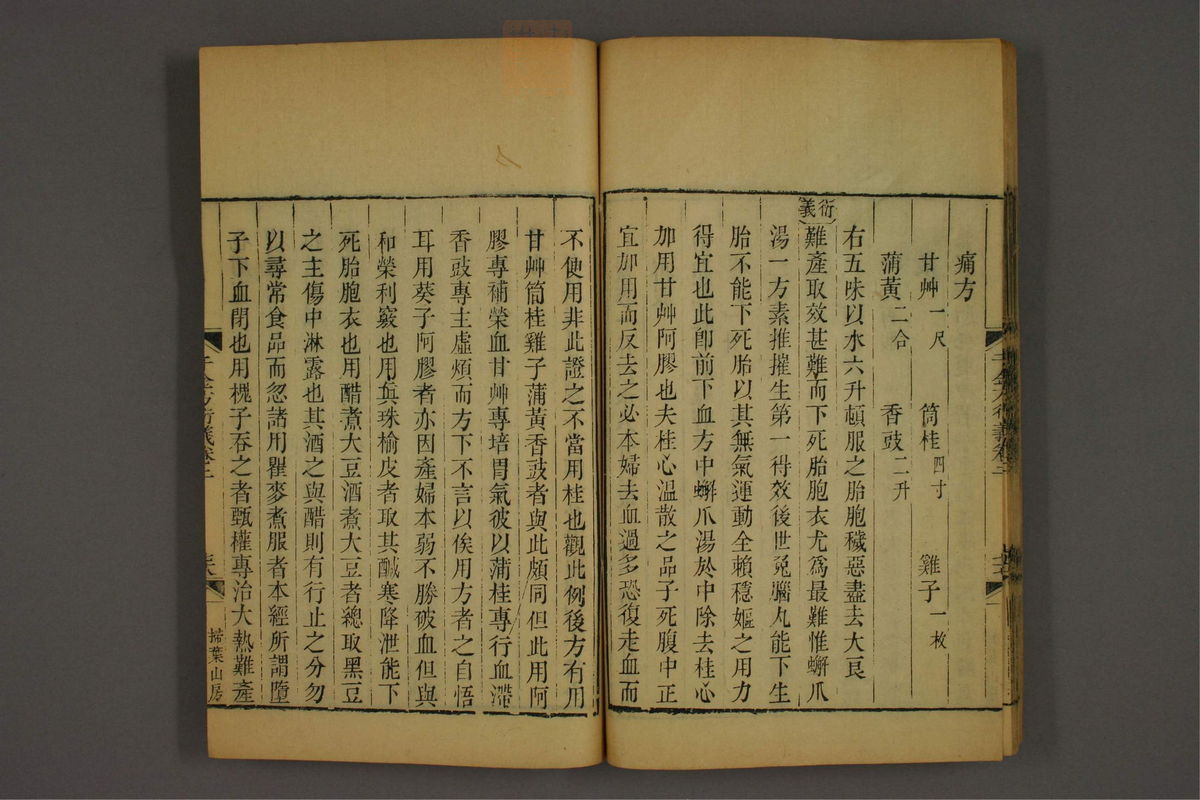 痛方
甘艸一尺　筒桂四寸　雞子一枚
蒲黃二合　香豉二升
右五味以水六升頓服之胎胞穢惡盡去大良
衍義
難產取效甚難而下死胎胞衣尤爲最難惟蠏爪
湯一方素推摧生第一得效後世兔腦丸能下生
胎不能下死胎以其無氣運動全賴穩嫗之用力
得宜也此卽前下血方中蠏爪湯於中除去桂心
加用甘艸阿膠也夫桂心溫散之品子死腹中正
宜加用而反去之必本婦去血過多恐復走血而
不使用非此證之不當用桂也觀此例後方有用
甘艸筒桂雞子蒲黃香豉者與此頗同但此用阿
膠專補榮血甘艸專培胃氣彼以蒲桂專行血滯
香豉專主虛煩而方下不言以俟用方者之自悟
耳用葵子阿膠者亦因產婦本弱不勝破血但與
和榮利竅也用眞珠榆皮者取其鹹寒降泄能下
死胎胞衣也用醋煮大豆酒煮大豆者總取黑豆
之主傷中淋露也其酒之與醋則有行止之分勿
以尋常食品而忽諸用瞿麥煮服者本經所謂墮
子下血閉也用槐子吞之者甄權專治大熱難產
千金方衍義卷二
掃葉山房